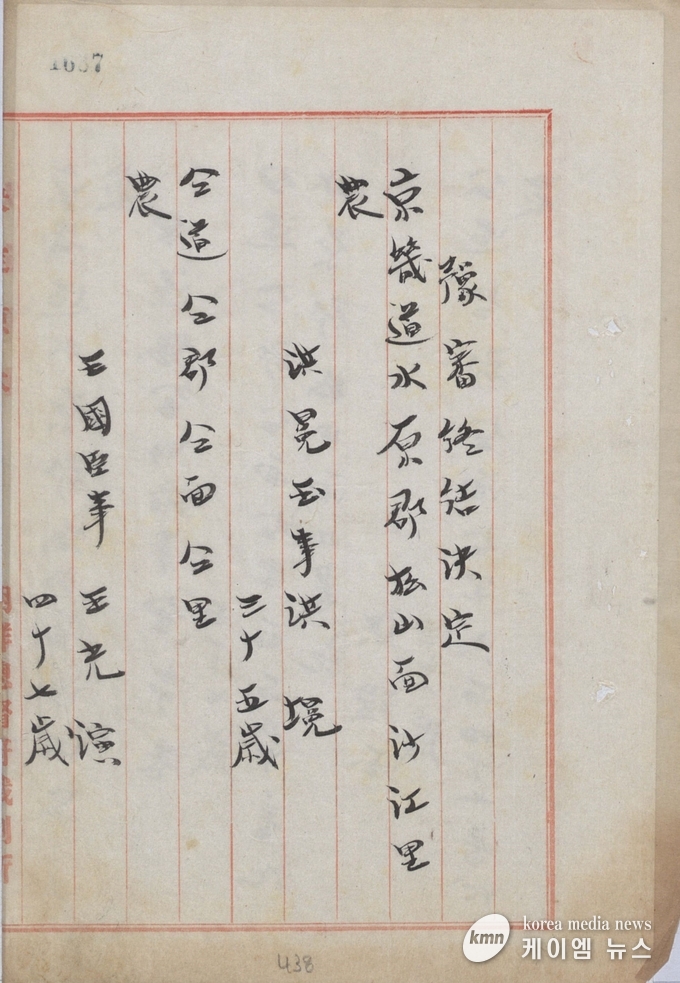 1037
豫審終結決定
京畿道水原郡松山面沙江里
農
洪冕玉事洪㷇
三十五歲
仝道仝郡仝面仝里
農
王國臣事王光演
四十七歲
438
korea media news
kmn
케이엠 뉴스